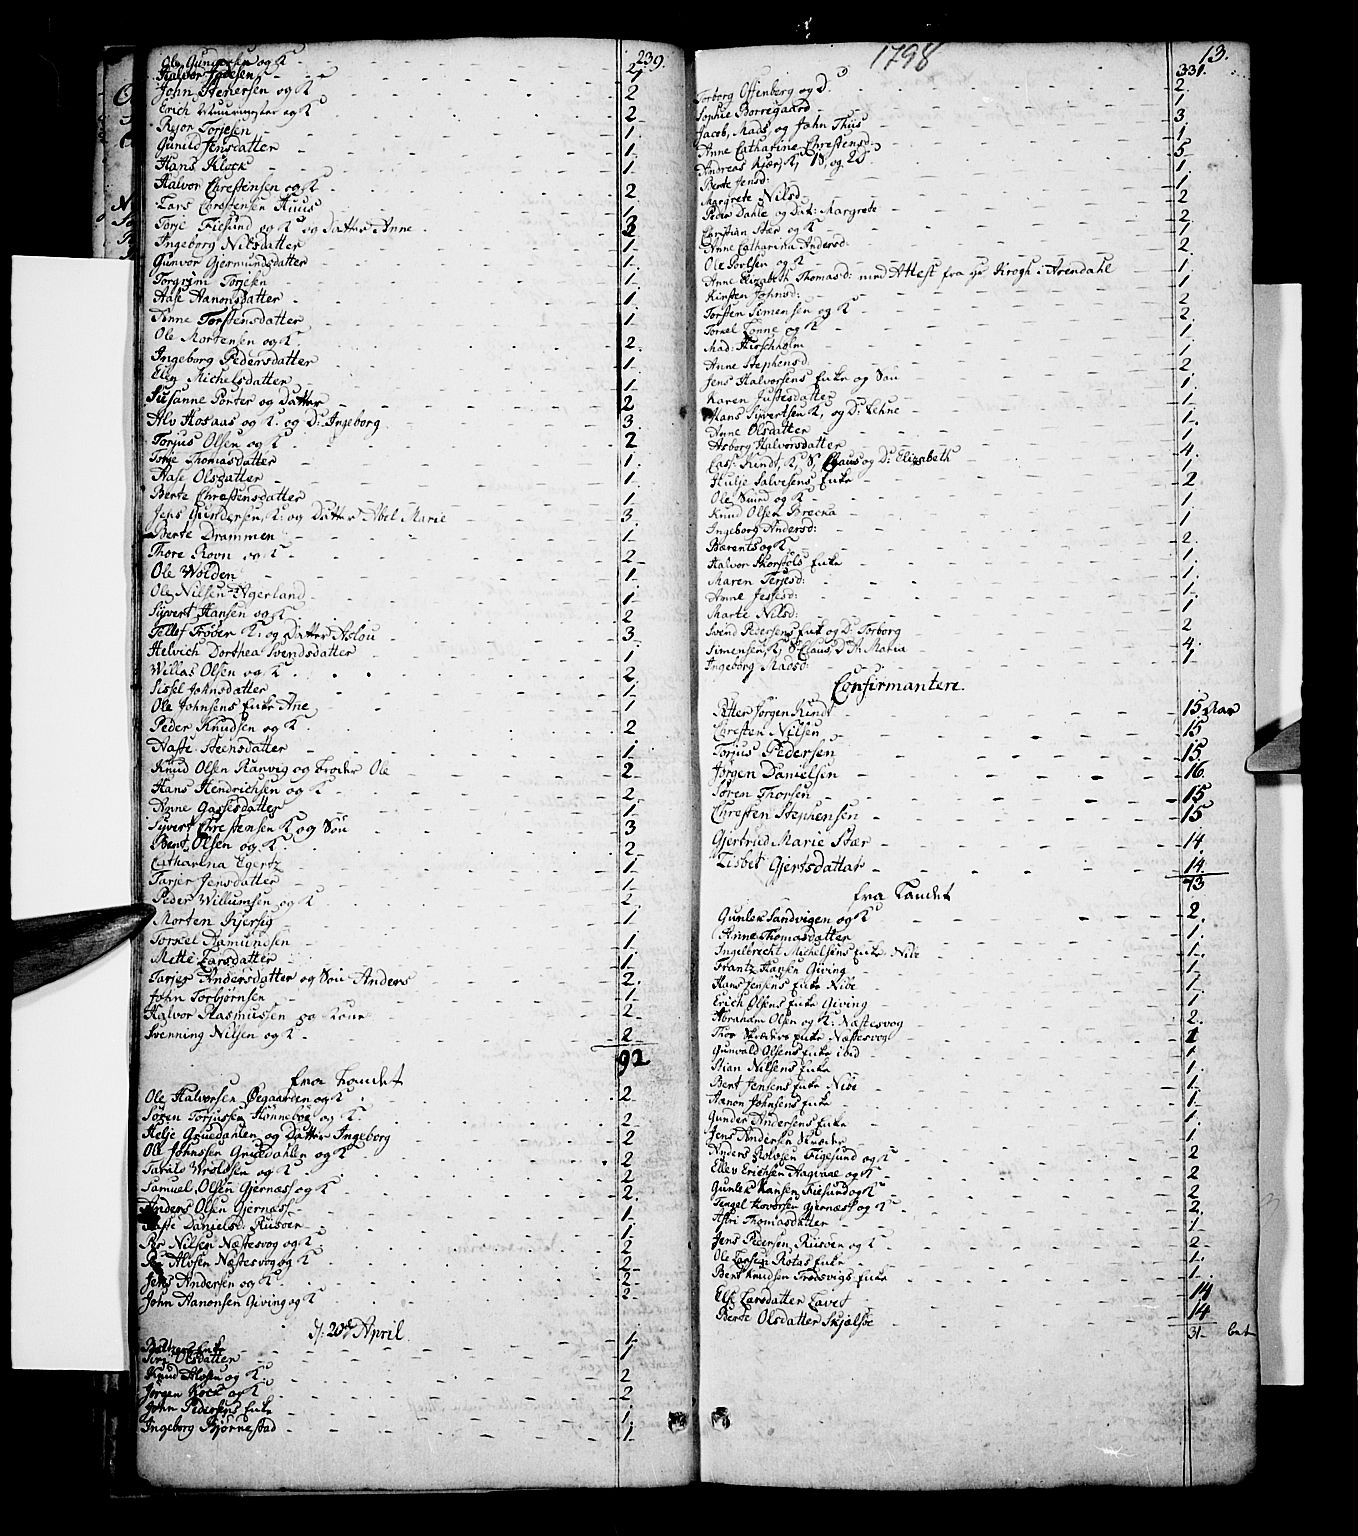 239.
Ole Gundersen og K - 2
Halvor Jodesen - 1
John Stenersen og K - 2
Erich Muurmester og K - 2
Rejor Torjesen - 1
Gunild Jensdatter - 1
Hans Klock - 1
Halvor Chrestensen og K - 2
Lars Chrestensen Huus - 1
Torje Fiesund og K og Datter Anne - 3
Ingeborg Nilsdatter - 1
Gunvor Gjermundsdatter - 1
Torgrim Torjesen - 1
Aase Aanonsdatter - 1
Anne Torstensdatter - 1
Ole Mortensen og K - 2
Ingeborg Pedersdatter - 1
Eleg Michelsdatter - 1
Susanne Porter og Datter - 2
Alv Hosaas og K: og D: Ingeborg - 3
Torjus Olsen og K - 2
Torje Thomasdatter - 1
Aase Olsdatter - 1
Berte Chrestensdatter - 1
Jens Gundersen, K: og Datter Abel Marie - 3
Berte Drammen - 1
Thore Rovn og K - 2
Ole Wolden - 1
Ole Nilsen Agerland - 1
Sÿvert Hansen og K - 2
Tellef Trøber K: og Datter Aslou - 3
Helvich Dorthea Svendsdatter - 1
Willas Olsen og K - 2
Sissel Johnsdatter - 1
Ole Johnsens Enke Ane - 1
Peder Knudsen og K - 2
Aaste Steensdatter - 1
Knud Olsen Ranvig og broder Ole - 2
Hans Hendrichsen og K - 2
Anne Gassesdatter - 1
Syvert Chrestensen K og Søn - 3
Bent Olsen og K - 2
Catharina Egertz - 1
Tarjer Jensdatter - 1
Peder Willumsen og K - 2
Morten Kjersig - 1
Torkel Aamundsen - 1
Mette Larsdatter - 1
Tarjer Andersdatter og Søn Anders - 2
John Torbjørnsen - 1
Halvor Rasmussen og Kone - 2
Svenning Nilsen og K - 2
92
fra Landet
Ole Halvorsen Øegaarden og K - 2
Søren Torjussen Hønneboe og K - 2
Helje Gruedahlen og Datter Ingeborg - 2
Ole Johnssen Gruedahlen og K - 2
Tarald Wroldsen og K - 2
Samuel Olsen Gjernæss og K - 2
Anders Olsen Gjernæss - 1
Aaste Danielsd: Ruseer - 1
Per Nilsen Næstesvog og K - 2
Per Alvsen Næstesvog og K - 2
Jens Andersen og K - 2
John Aanonsen Giving og K - 2
d: 20de April
Enke - 1
Siri Olsdatter - 1
Knud Alvsen og K - 2
Jørgen Kock og K - 2
John Pedersens Enke - 1
Ingeborg Bjørnestad - 1
1798
13.
331.
Torborg Offenberg og D - 2
Sophie Borregaard - 1
Jacob, Mads og John Thiis - 3
Anne Catharine Chrestensd - 1
Andreas Kjør, K, 1S, og 2D - 5
Berte Jensd: - 1
Margrete Nilsd - 1
Peder Dahle og Dat: Margrete - 2
Christian Stær og K - 2
Anne Catharina Andersd - 1
Ole Povlsen og K - 2
Anne Elizabeth Thomasd: med Attest fra Hr Krogh i Arendahl - 1
Kirsten Johnsd: - 1
Torsten Simensen og K - 2
Torkel Lonne og K - 2
Mad: Hirschholm - 1
Anne Stephensd: - 1
Jens Halvorsens Enke og Søn - 2
Karen Justesdatter - 1
Hans Syvertsen K, og D: Lehne - 1
Anne Olsdatter - 1
Asborg Halvorsdatter - 1
Casp: Kindt, K, S, Claus og D: Elizabeth - 4
Hulje Salvesens Enke - 1
Ole Sund og K - 2
Knud Olsen Brecka - 1
Ingeborg Andersd: - 1
Bærents og K - 2
Halvor Skorstøls Enke - 1
Maren Terjesd: - 1
Anne Jessesd: - 1
Marte Nilsd: - 1
Svend Pedersens Enk og D: Torborg - 2
Simensen, K, S: Claus, D: A: Maria - 4
Ingeborg Madsd: - 1
Confirmantere.
Petter Jørgen Kindt - 15 Aar
Chresten Nilsen - 15
Torjus Pedersen - 15
Jørgen Danielsen - 16
Søren Thorsen - 15
Chresten Stephensen - 15
Gjertrud Marie Stær - 14
Lisbet Gjertsdatter - 14
73
fra Landet
Gunlek Sandvigen og K - 2
Anne Thomasdatter - 1
Ingelbrecht Michelsens Enke Nide - 1
Frantz Hansen Giving - 1
Hans Jensens Enke Nide - 1
Erich Olsens Enke Giving - 1
Abraham Olsen og K: Næstesvog - 2
Thor Skræders Enke Næstesvog - 1
Gunvald Olsens Enke ibid - 1
Stian Nilsens Enke - 1
Bent Jensens Enke Nide - 1
Aanon Johnsens Enke - 1
Gunder Andersens Enke - 1
Jens Andersen Skræder - 1
Anders Rolvsen Figesund og K - 2
Ellev Erichsen Aagivaae og K - 2
Gunlek Hansen Fiesund og K - 2
Tengel Hovorsen Gjernæss og K - 2
Astri Thomasdatter - 1
Jens Pedersen Ruseer og K - 2
Ole Larsen Rotas Enke - 1
Bent Knudsen Trodsvigs Enke - 1
Else Larsdatter Lavet - 14
Berte Olsdatter Skjalsøe - 14
31